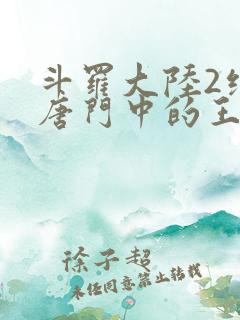 斗羅大陸2絕
唐門中的王
徐子超
未任同意禁止转载